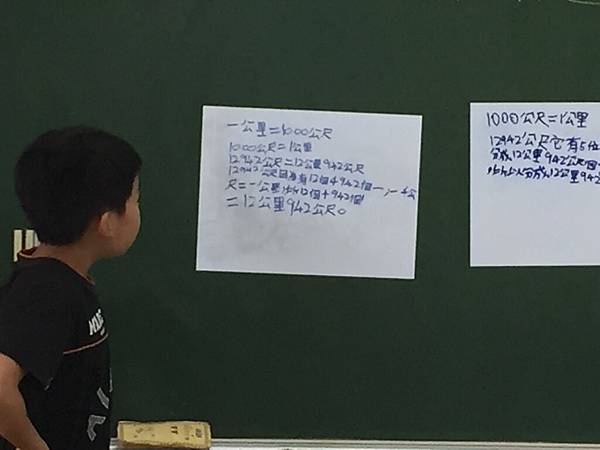 一公里=1000公尺
1000公尺=1公里
12942公尺=12公里942公尺
12942公尺因為有12個+942個一
尺=一公里 12個+942個
=12公里942公尺。
1000公尺=1公里
12942公尺它有5位
分成12公里942公尺
所以分成12公里942